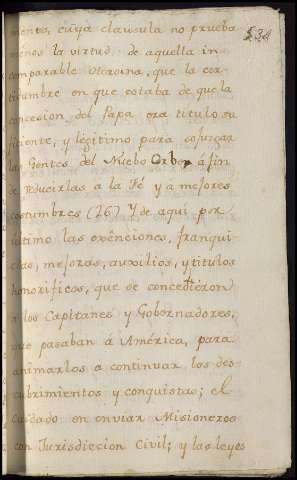 miento, cuya clausula no prueba
menos la virtud de aquella in
comparable Heroina, que la cer
tidumbre en que estaba de que la
concesion del Papa era titulo su
ficiente, y legitimo para cojuzgar
las Gentes del Nuebo Orbe, á fin
de reducirlas a la Fé y a mejores
costumbres (26) Y de aqui por
ultimo las exênciones, franqui
cias, mejoras, auxilios, y titulos
honorificos, que se concedieron
a los Capitanes y Gobernadores,
que pasaban á América, para
animarlos a continuar los des
cubrimientos y conquistas; el
Cuidado en enviar Misioneros
con Jurisdiccion Civil; y las leyes